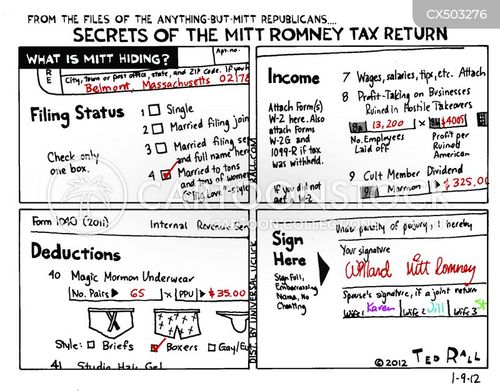 CX503276
FROM THE FILES OF THE ANYTHING-BUT-MITT REPUBLICANS....
SECRETS OF THE MITT ROMNEY TAX RETURN
WHAT IS MITT HIDING?
Apt. no.
R
E
City, town or post office, state, and ZIP code. If you h
Belmont, Massachusetts 0217
Filing Status
Check only
one box.
1 Single
2 Married filing join
3 Married filing se
and full name here
4 Married to tons
and tons of women
"Big Love"-style
Income
Attach Form(s)
W-2 here. Also
attach Forms
W-2G and
1099-R if tax
was withheld.
If you did not
get a W-2
7 Wages, salaries, tips, etc. Attach
8 Profit-Taking on Businesses
Ruined in Hostile Takeovers
8a 13,200 x 8b $4005
No. Employees
Laid off
Profit per
Ruined
American
9 Cult Member Dividend
9 Mormon $325.00
Form 1040 (2011) Internal Revenue Ser
Deductions
40 Magic Mormon Underwear
No. Pairs 65 x PPU $35.00
Style: Briefs Boxers Gay/Eu
41 Studio Hair Gel
RALL.COM
DIST. BY UNIVERSAL UCLICK
Sign
Here
Sign Full,
Embarrassing
Name, No
Cheating
Under penalty of perjury, I hereby
Your signature
Willard Mitt Romney
Spouse's signature, if a joint return
Wife 1 Karen Wife 2 Jill Wife 3 St
©2012 TED RALL
1-9-12
CARTOONSTOCK
CARTOON COLLECTION